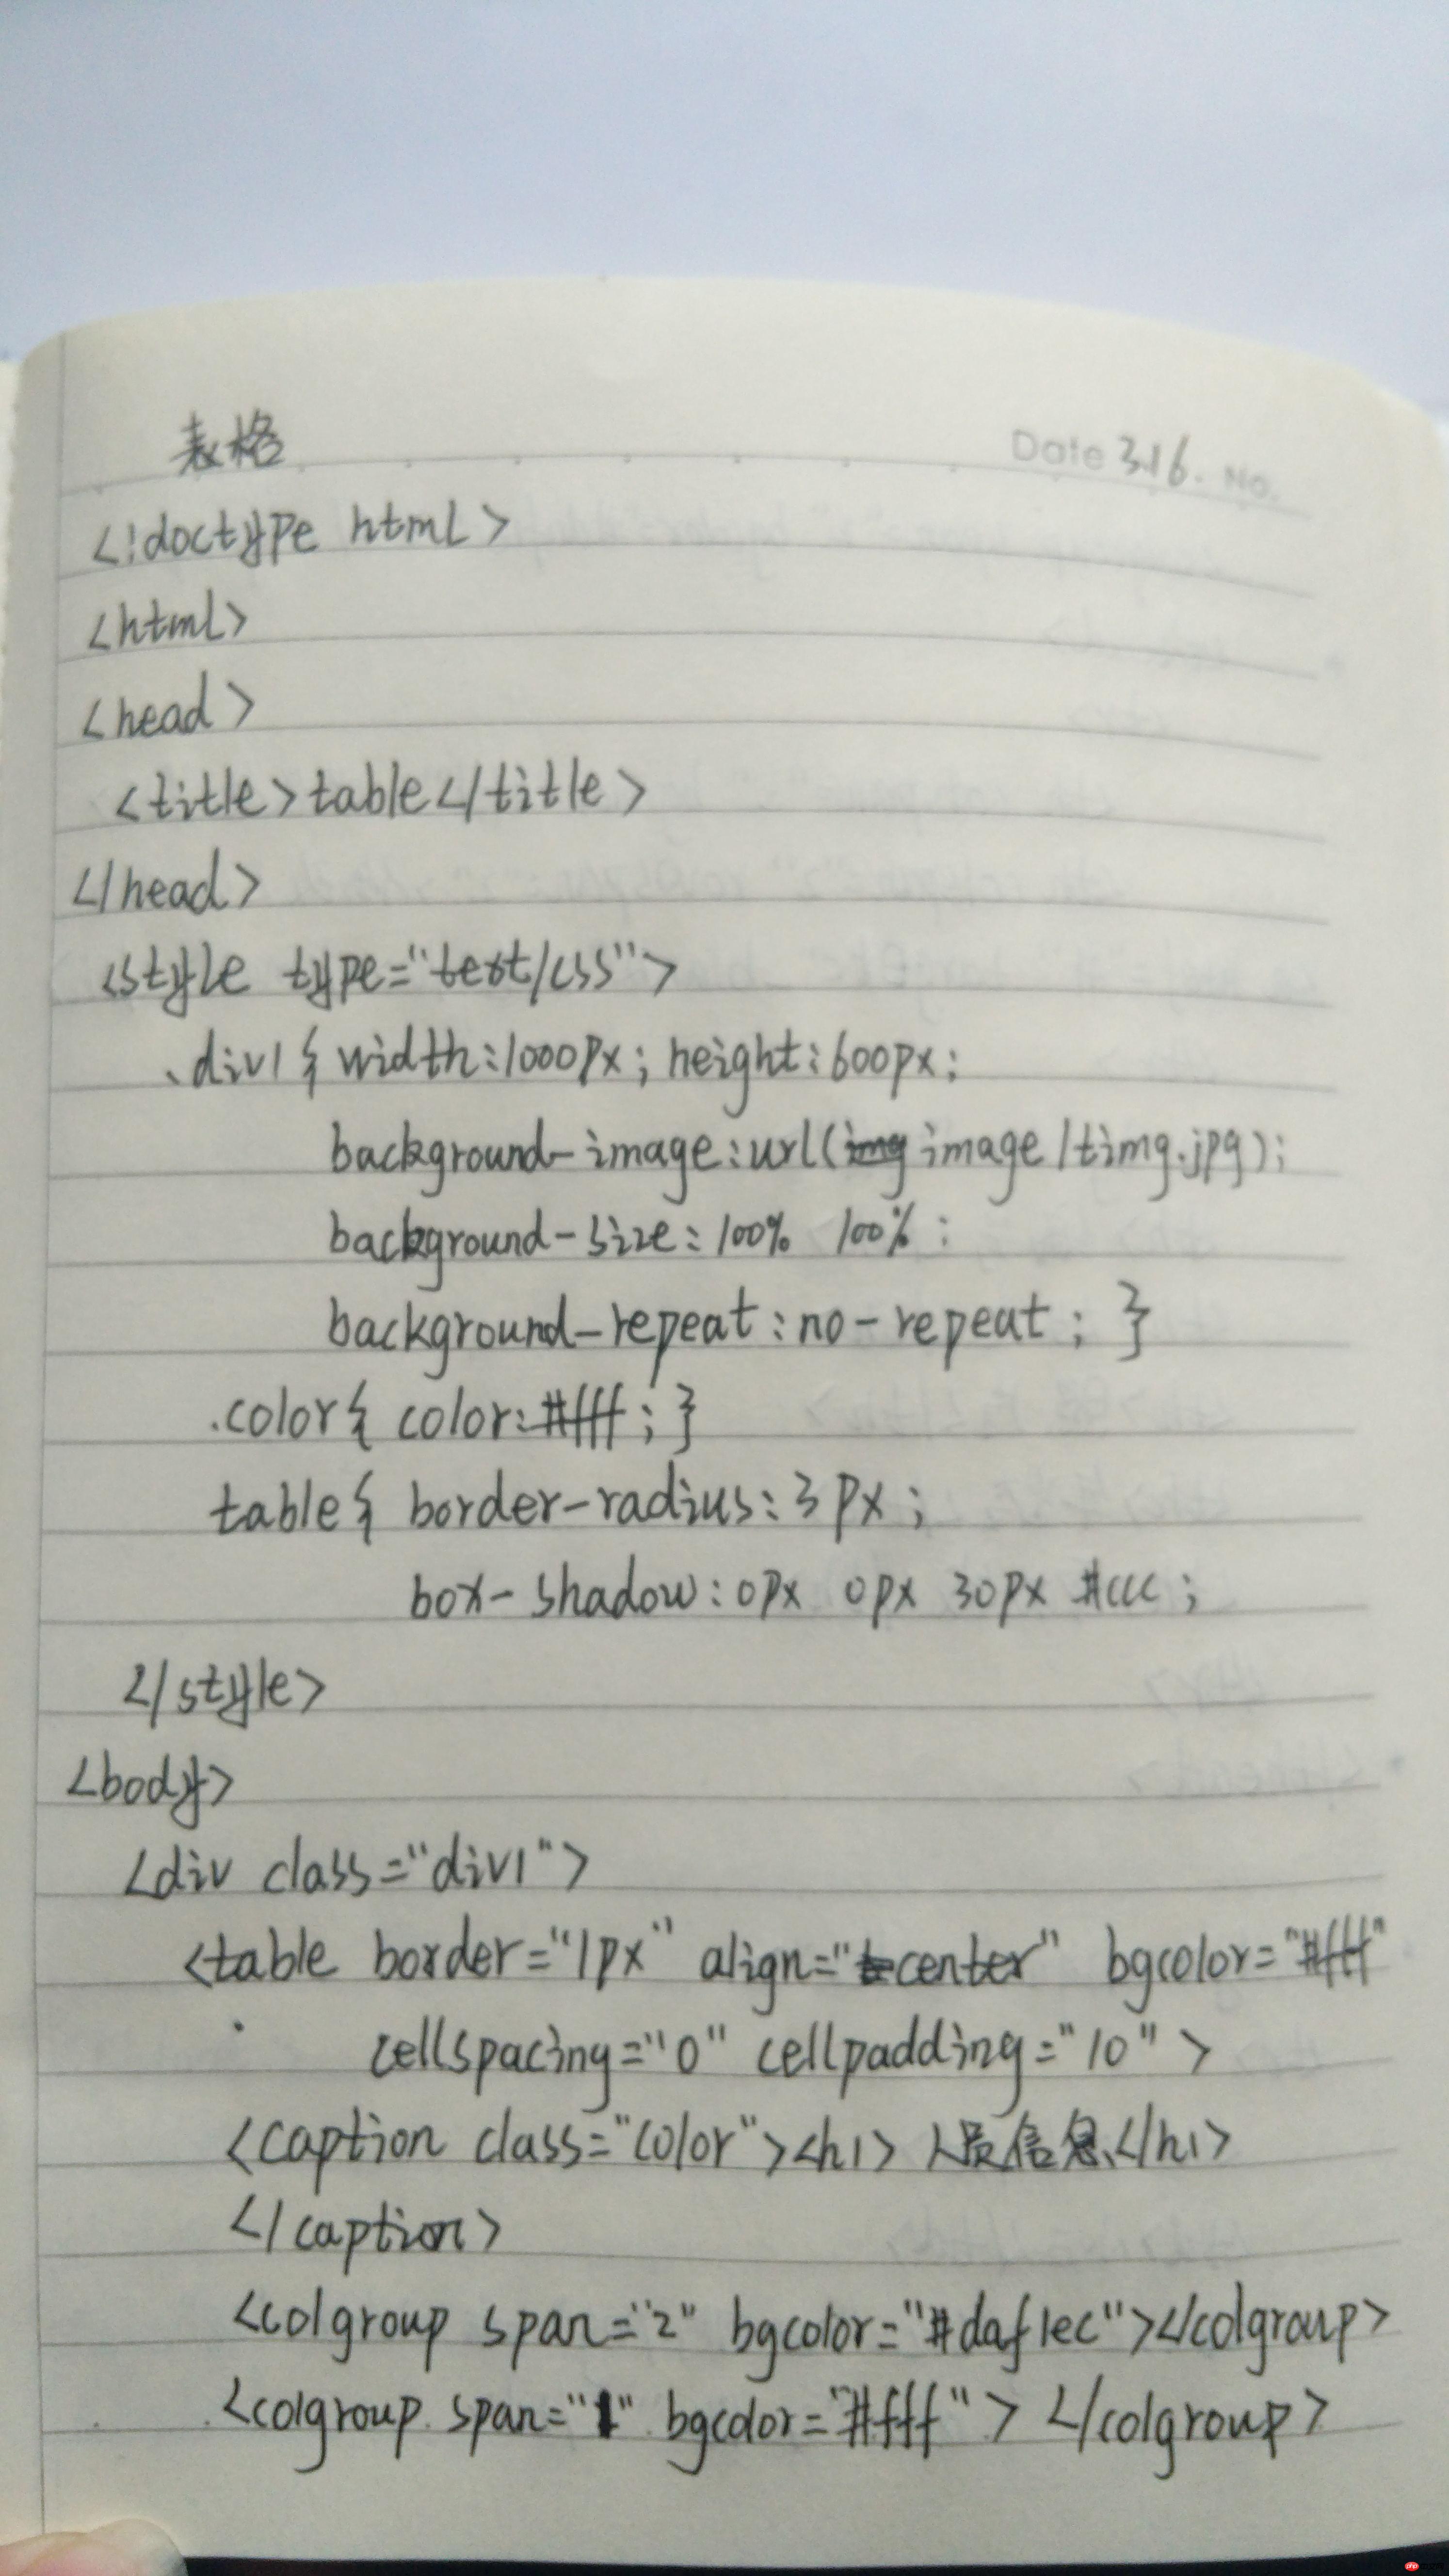 表格
Date 3.16. No.
<!doctype html>
<html>
<head>
<title>table</title>
</head>
<style type="text/css">
.div1{ width:1000px; height:600px;
background-image:url(image/timg.jpg);
background-size:100% 100%;
background-repeat:no-repeat; }
.color{ color:#fff; }
table{ border-radius:3px;
box-shadow:0px 0px 30px #ccc;
</style>
<body>
<div class="div1">
<table border="1px" align="center" bgcolor="#fff"
cellspacing="0" cellpadding="10">
<caption class="color"><h1>人员信息</h1>
</caption>
<colgroup span="2" bgcolor="#daf1ec"></colgroup>
<colgroup span="1" bgcolor="#fff"></colgroup>
php